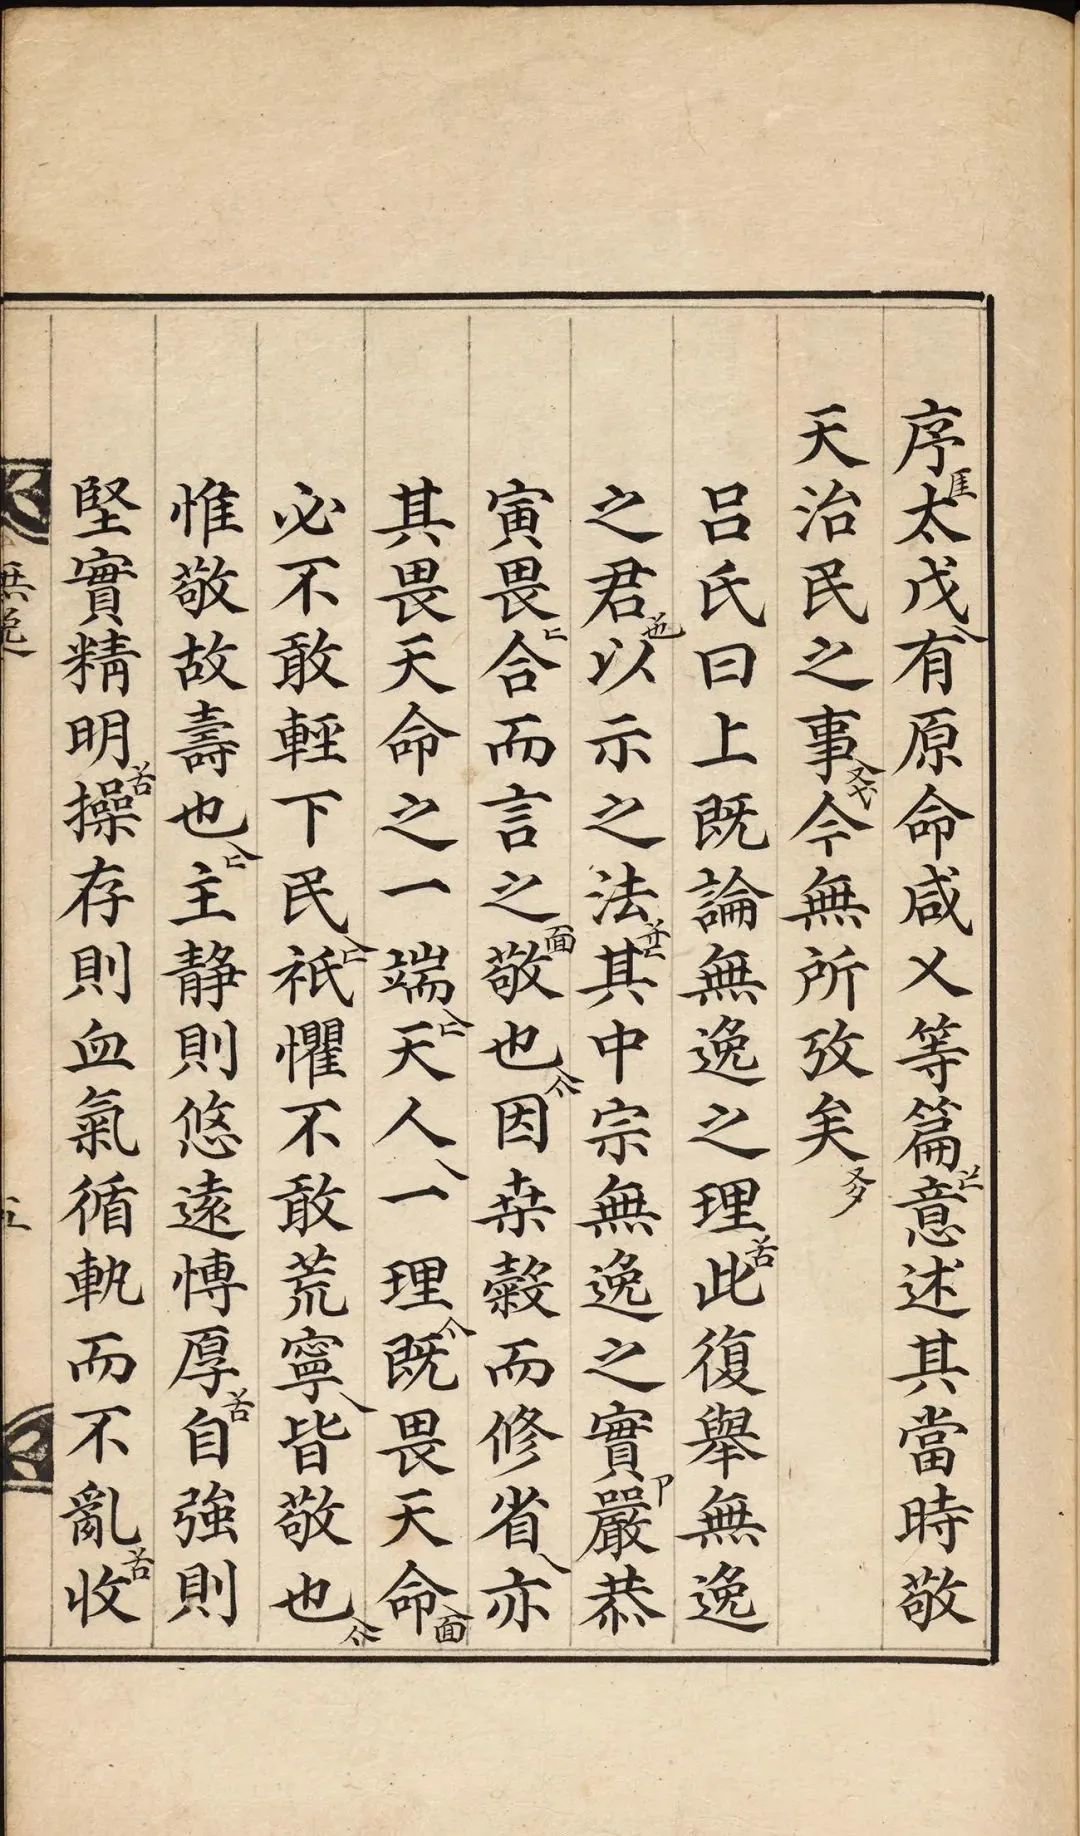 序太戊有原命咸乂等篇意述其當時敬
天治民之事今無所攷矣
呂氏曰上既論無逸之理此復舉無逸
之君以示之法其中宗無逸之實嚴恭
寅畏合而言之敬也因桒穀而修省亦
其畏天命之一端天人一理既畏天命
必不敢輕下民祇懼不敢荒寧皆敬也
惟敬故壽也主靜則悠遠愽厚自強則
堅實精明操存則血氣循軌而不亂收
無逸